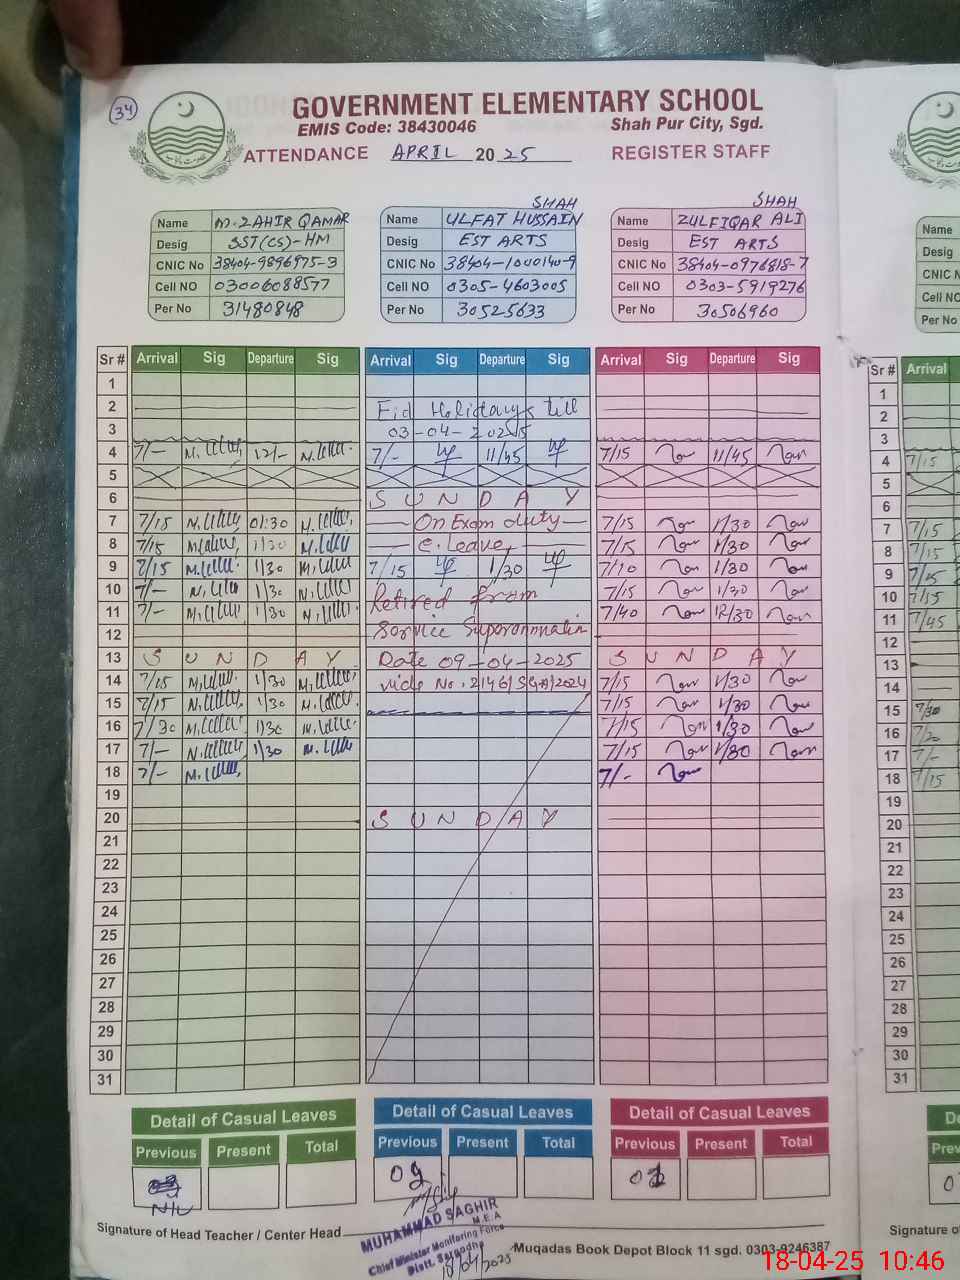 34
GOVERNMENT ELEMENTARY SCHOOL
EMIS Code: 38430046 Shah Pur City, Sgd.
ATTENDANCE APRIL 2025 REGISTER STAFF
Name M. ZAHIR QAMAR
Desig SST(CS)-HM
CNIC No 38404-9896975-3
Cell NO 03006088577
Per No 31480848
Name ULFAT HUSSAIN SHAH
Desig EST ARTS
CNIC No 38404-1000140-9
Cell NO 0305-4603005
Per No 30525633
Name ZULFIQAR ALI SHAH
Desig EST ARTS
CNIC No 38404-0976818-7
Cell NO 0303-5919276
Per No 30506960
Name
Desig
CNIC N
Cell NO
Per No
Sr # Arrival Sig Departure Sig Arrival Sig Departure Sig Arrival Sig Departure Sig Sr # Arrival
1 1
2 Eid Holidays till 2
3 03-04-2025 3
4 7/- 12/- 7/- 11/45 7/15 11/45 4 7/15
5 5
6 S U N D A Y 6
7 7/15 01:30 On Exam duty 7/15 1/30 7 7/15
8 7/15 1/30 C. Leave 7/15 1/30 8 7/15
9 7/15 1/30 7/15 1/30 7/10 1/30 9
10 7/- 1/30 Retired from 7/15 1/30 10 7/15
11 7/- 1/30 7/40 12/30 11 7/45
12 Service 12
13 S U N D A Y Date 09-04-2025 S U N D A Y 13
14 7/15 1/30 vide No. 7/15 1/30 14
15 7/15 1/30 7/15 1/30 15 7/30
16 7/30 1/30 7/15 1/30 16 7/20
17 7/- 1/30 7/15 1/30 17 7/-
18 7/- 7/- 18 7/15
19 19
20 S U N D A Y 20
21 21
22 22
23 23
24 24
25 25
26 26
27 27
28 28
29 29
30 30
31 31
Detail of Casual Leaves Detail of Casual Leaves Detail of Casual Leaves
Previous Present Total Previous Present Total Previous Present Total
Nil
Signature of Head Teacher / Center Head
MUHAMMAD SAGHIR
M.E.A
Chief Minister Monitoring Force
Distt. Sargodha
Muqadas Book Depot Block 11 sgd. 0303-9246387
18-04-25 10:46